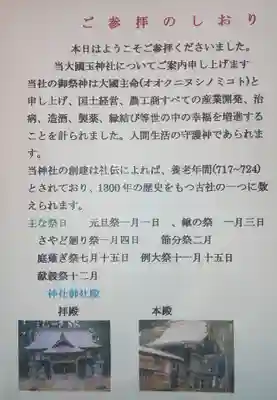 ご参拝のしおり
本日はようこそご参拝くださいました。
当大國玉神社についてご案内申し上げます
当社の御祭神は大國主命(オオクニヌシノミコト)と
申し上げ、国土経営、農工商すべての産業開発、治
病、造酒、製薬、縁結び等世の中の幸福を増進する
ことを計られました。人間生活の守護神であられま
す。
当神社の創建は社伝によれば、養老年間(717~724)
とされており、1300年の歴史をもつ古社の一つに数
えられます。
主な祭日 元旦祭一月一日 、鍬の祭 一月三日
さやど廻り祭一月四日 節分祭二月
庭蔭ぎ祭七月十五日 例大祭十一月十五日
献穀祭十二月
神社御社殿
拝殿 本殿